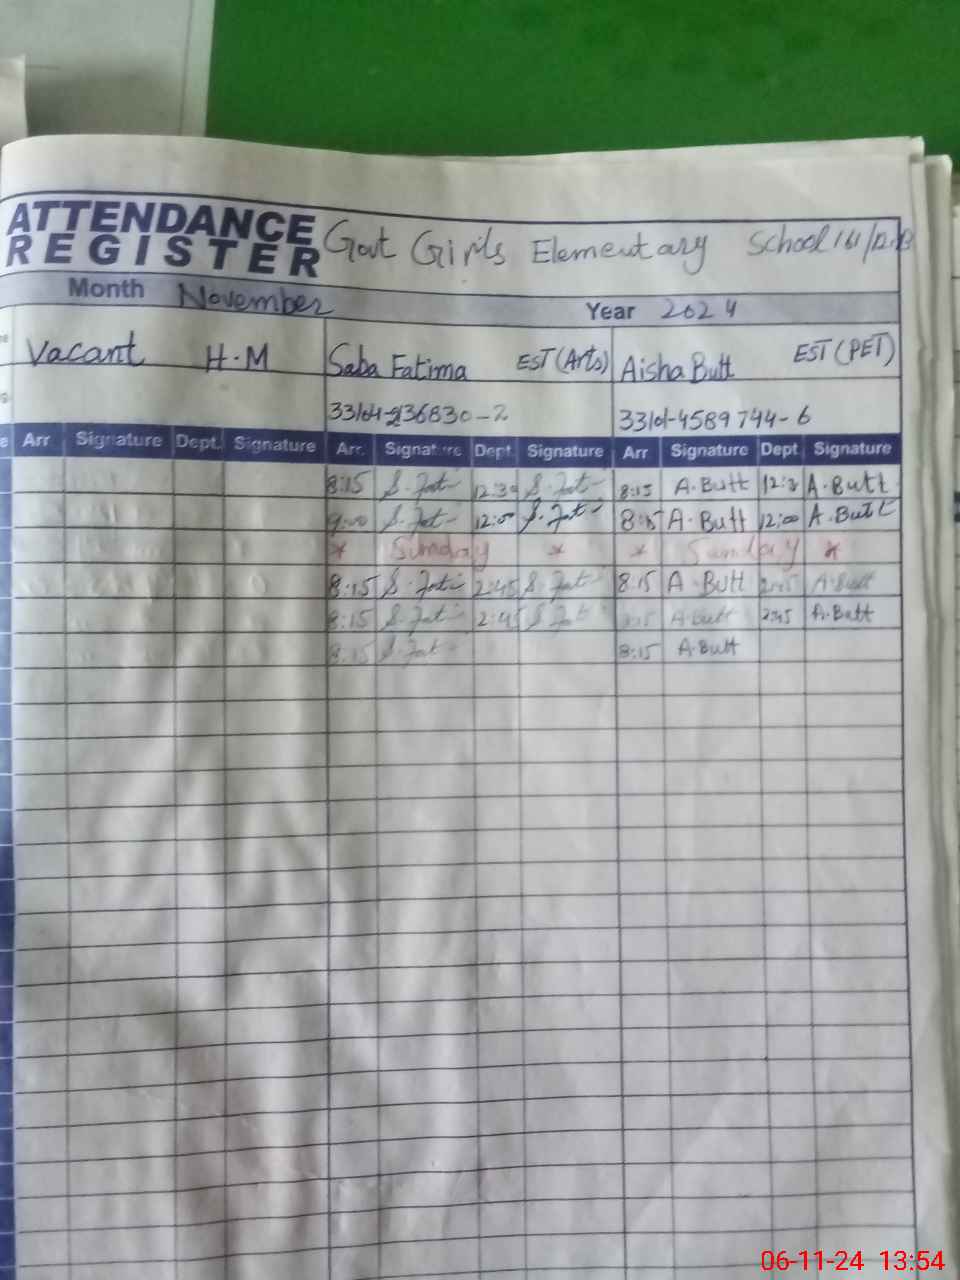 ATTENDANCE
REGISTER
Govt Girls Elementary School 161/
Month November
Year 2024
Vacant H.M
Saba Fatima EST (Arts)
Aisha Butt EST (PET)
33101-4589744-6
Arr Signature Dept. Signature Arr. Signature Dept. Signature Arr Signature Dept Signature
8:15 S. Fat 12:30 S. Fat 8:15 A. Butt A. Butt
9:00 S. Fat 12:00 S. Fat 8:15 A. Butt 12:00 A. Butt
* Sunday * * Sunday *
8:15 S. Fat 2:45 S. Fat 8:15 A. Butt 2:45 A. Butt
8:15 S. Fat 2:45 S. Fat A. Butt 2:45 A. Butt
8:15 S. Fat 8:15 A. Butt
06-11-24 13:54